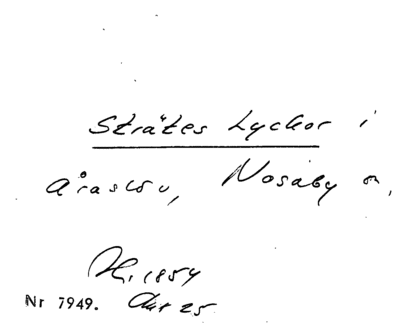 Strätes Lyckor i
Åraslöv, Nosaby sn,
1854
Nr 7949. Akt 25